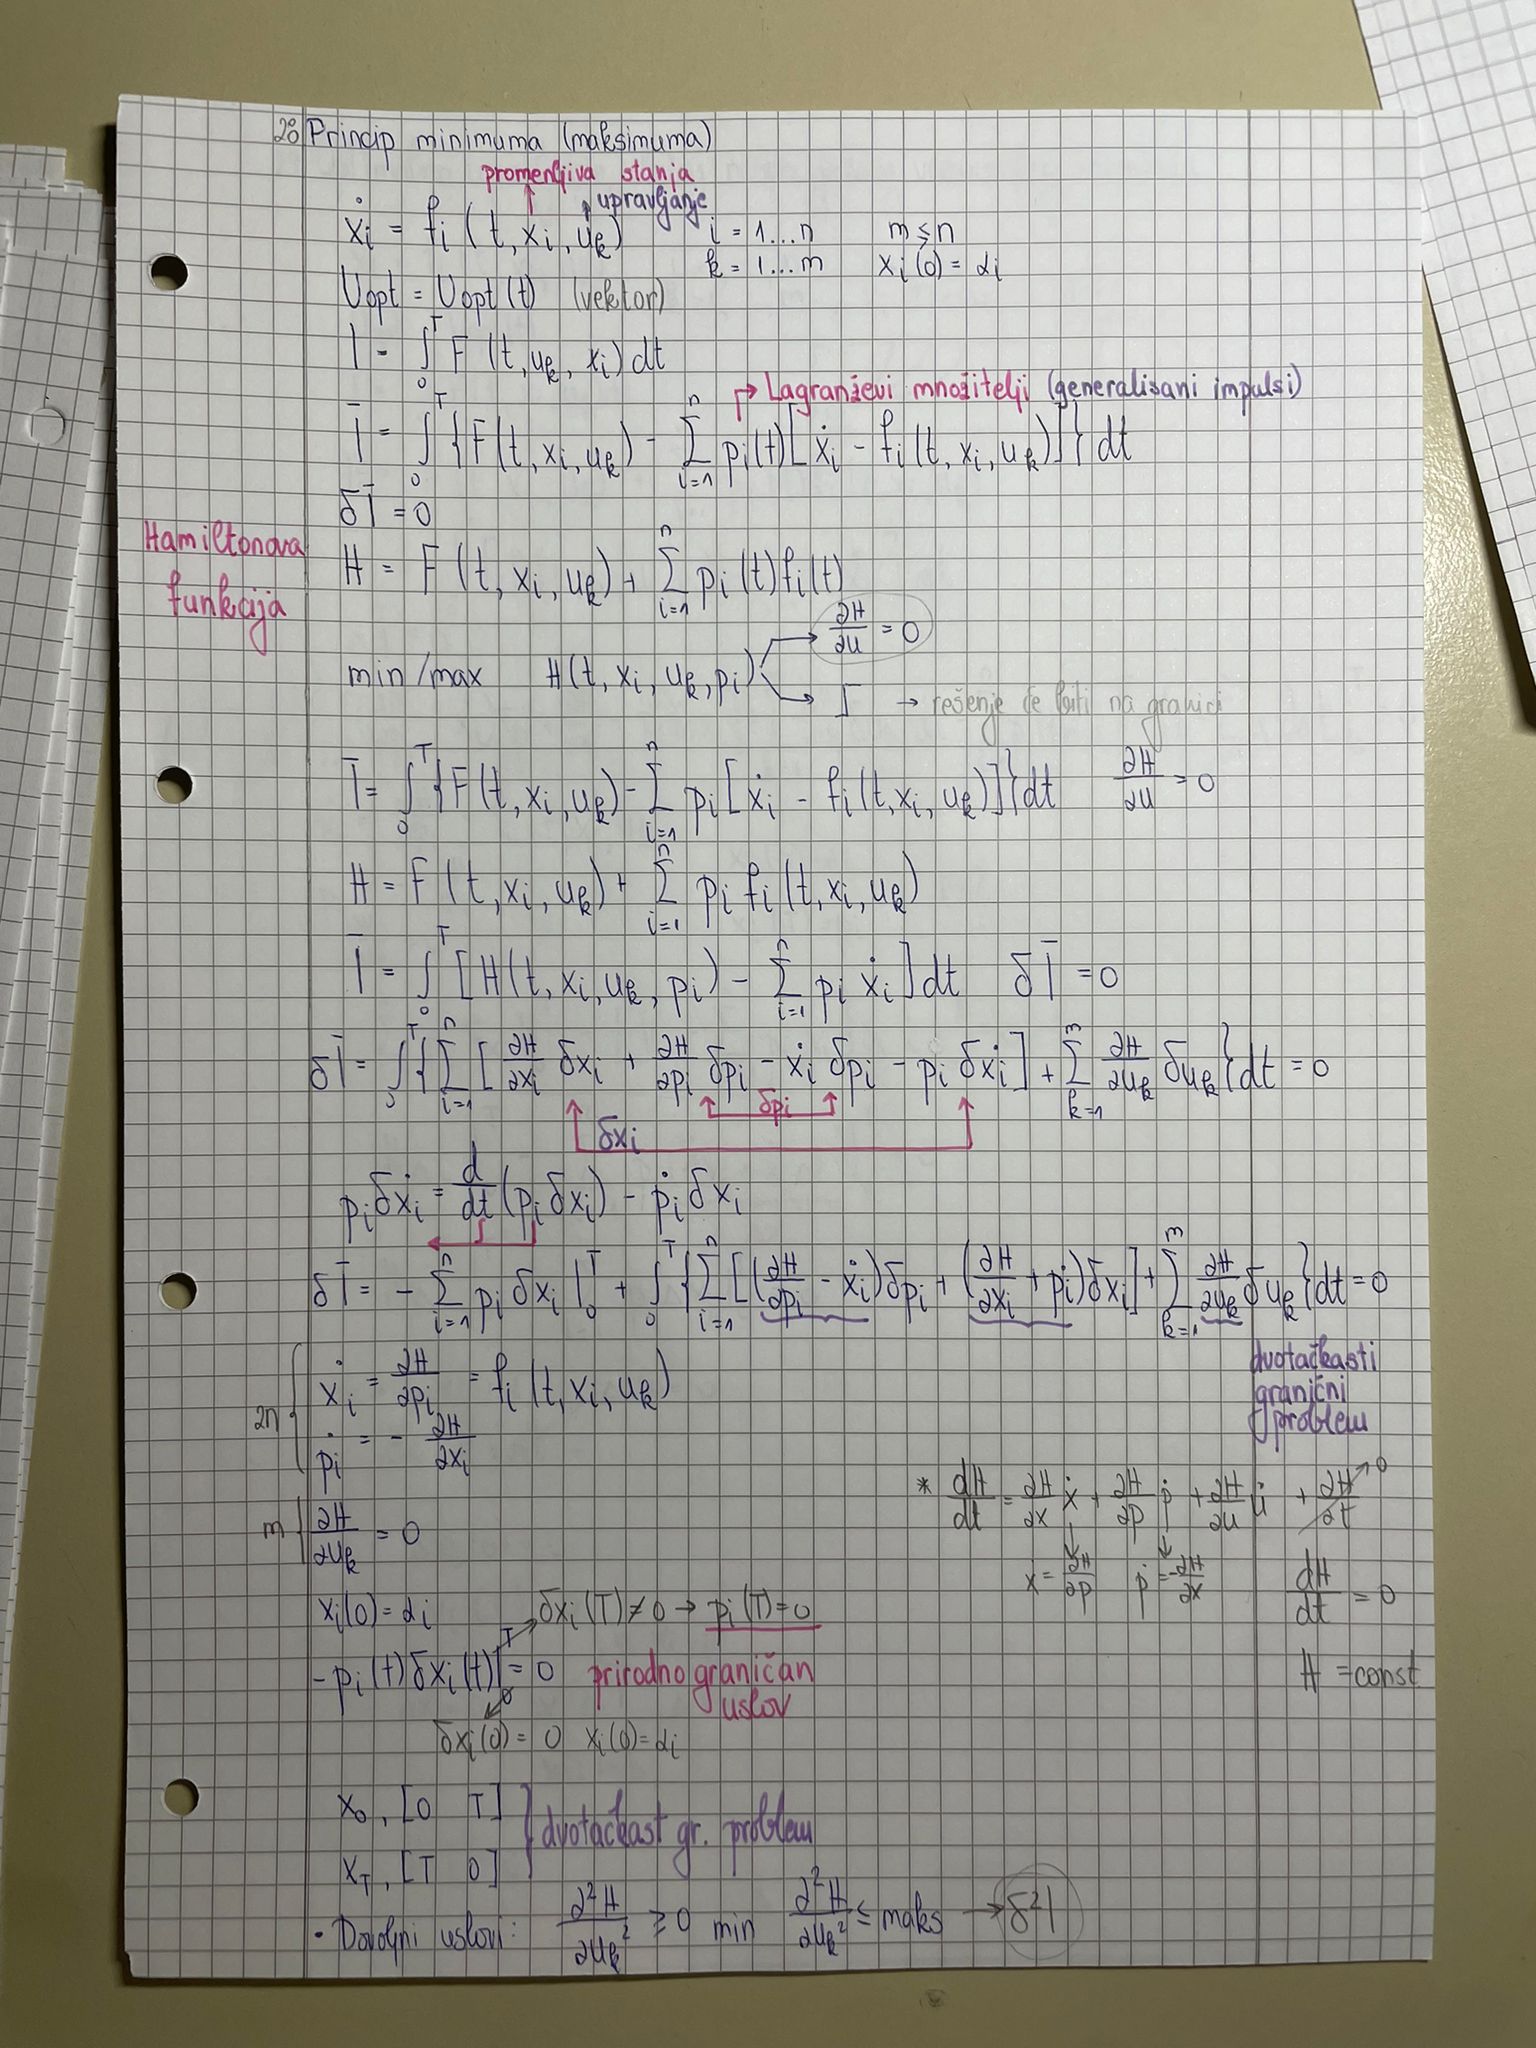 20 Princip minimuma (maksimuma)
promenljiva stanja
upravljanje
ẋi = fi (t, xi, uk) i = 1...n m ≤ n
k = 1...m xi(0) = αi
Uopt = Uopt(t) (vektor)
I = ∫₀ᵀ F (t, uk, xi) dt
→ Lagranževi množitelji (generalisani impulsi)
Ī = ∫₀ᵀ {F(t, xi, uk) - Σᵢ₌₁ⁿ pi(t)[ẋi - fi(t, xi, uk)]} dt
δĪ = 0
Hamiltonova funkcija
H = F (t, xi, uk) + Σᵢ₌₁ⁿ pi (t) fi(t)
∂H/∂u = 0
min/max H(t, xi, uk, pi)
→ rešenje će biti na granici
Ī = ∫₀ᵀ {F(t, xi, uk) - Σᵢ₌₁ⁿ pi [ẋi - fi(t, xi, uk)]} dt ∂H/∂u = 0
H = F (t, xi, uk) + Σᵢ₌₁ⁿ pi fi (t, xi, uk)
Ī = ∫₀ᵀ [H(t, xi, uk, pi) - Σᵢ₌₁ⁿ pi ẋi] dt δĪ = 0
δĪ = ∫₀ᵀ {Σᵢ₌₁ⁿ [∂H/∂xi δxi + ∂H/∂pi δpi - ẋi δpi - pi δẋi] + Σₖ₌₁ᵐ ∂H/∂uk δuk} dt = 0
δpi
δxi
pi δẋi = d/dt (pi δxi) - ṗi δxi
δĪ = - Σᵢ₌₁ⁿ pi δxi |₀ᵀ + ∫₀ᵀ {Σᵢ₌₁ⁿ [(∂H/∂pi - ẋi) δpi + (∂H/∂xi + ṗi) δxi] + Σₖ₌₁ᵐ ∂H/∂uk δuk} dt = 0
2n { ẋi = ∂H/∂pi = fi (t, xi, uk)
ṗi = - ∂H/∂xi
dvotačkasti
granični
problem
m { ∂H/∂uk = 0
* dH/dt = ∂H/∂x ẋ + ∂H/∂p ṗ + ∂H/∂u u̇ + ∂H/∂t → 0
ẋ = ∂H/∂p ṗ = -∂H/∂x dH/dt = 0
H = const
xi(0) = αi δxi (T) ≠ 0 → pi (T) = 0
- pi (t) δxi (t) |₀ᵀ = 0 prirodno graničan
uslov
δxi (0) = 0 xi(0) = αi
x₀, [0 T]
} dvotačkast gr. problem
x_T, [T 0]
• Dovoljni uslovi: ∂²H/∂uk² ≥ 0 min ∂²H/∂uk² ≤ maks → δ²I